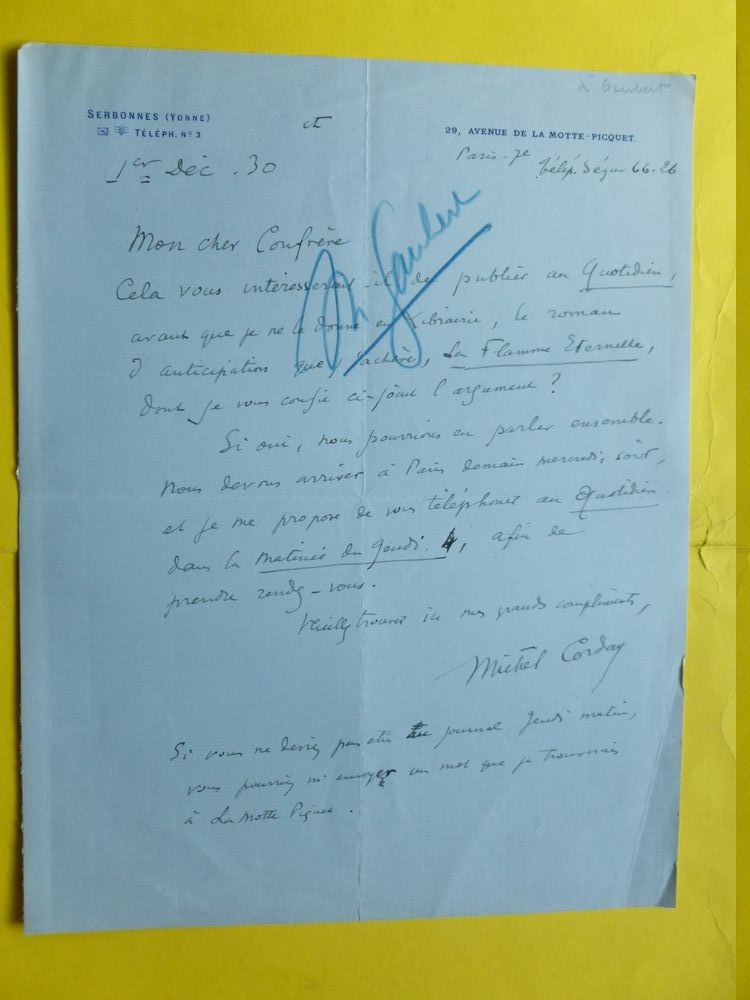 à Gaubert
SERBONNES (YONNE)
TÉLÉPH. Nº 3
et
29, AVENUE DE LA MOTTE-PICQUET.
Paris-7e
télép. Ségur 66.26
1er Déc. 30
M Gaubert
Mon cher Confrère
Cela vous intéresserait-il de publier au Quotidien,
avant que je ne le donne en librairie, le roman
d'anticipation que j'achève, La Flamme Eternelle,
dont je vous confie ci-joint l'argument ?
Si oui, nous pourrions en parler ensemble.
Nous devons arriver à Paris demain mercredi, soir,
et je me propose de vous téléphoner au Quotidien
dans la matinée du Jeudi 4, afin de
prendre rendez-vous.
Veuillez trouver ici mes grands compliments,
Michel Corday
Si vous ne deviez pas être au journal Jeudi matin,
vous pourriez m'envoyer un mot que je trouverais
à La Motte Piquet.